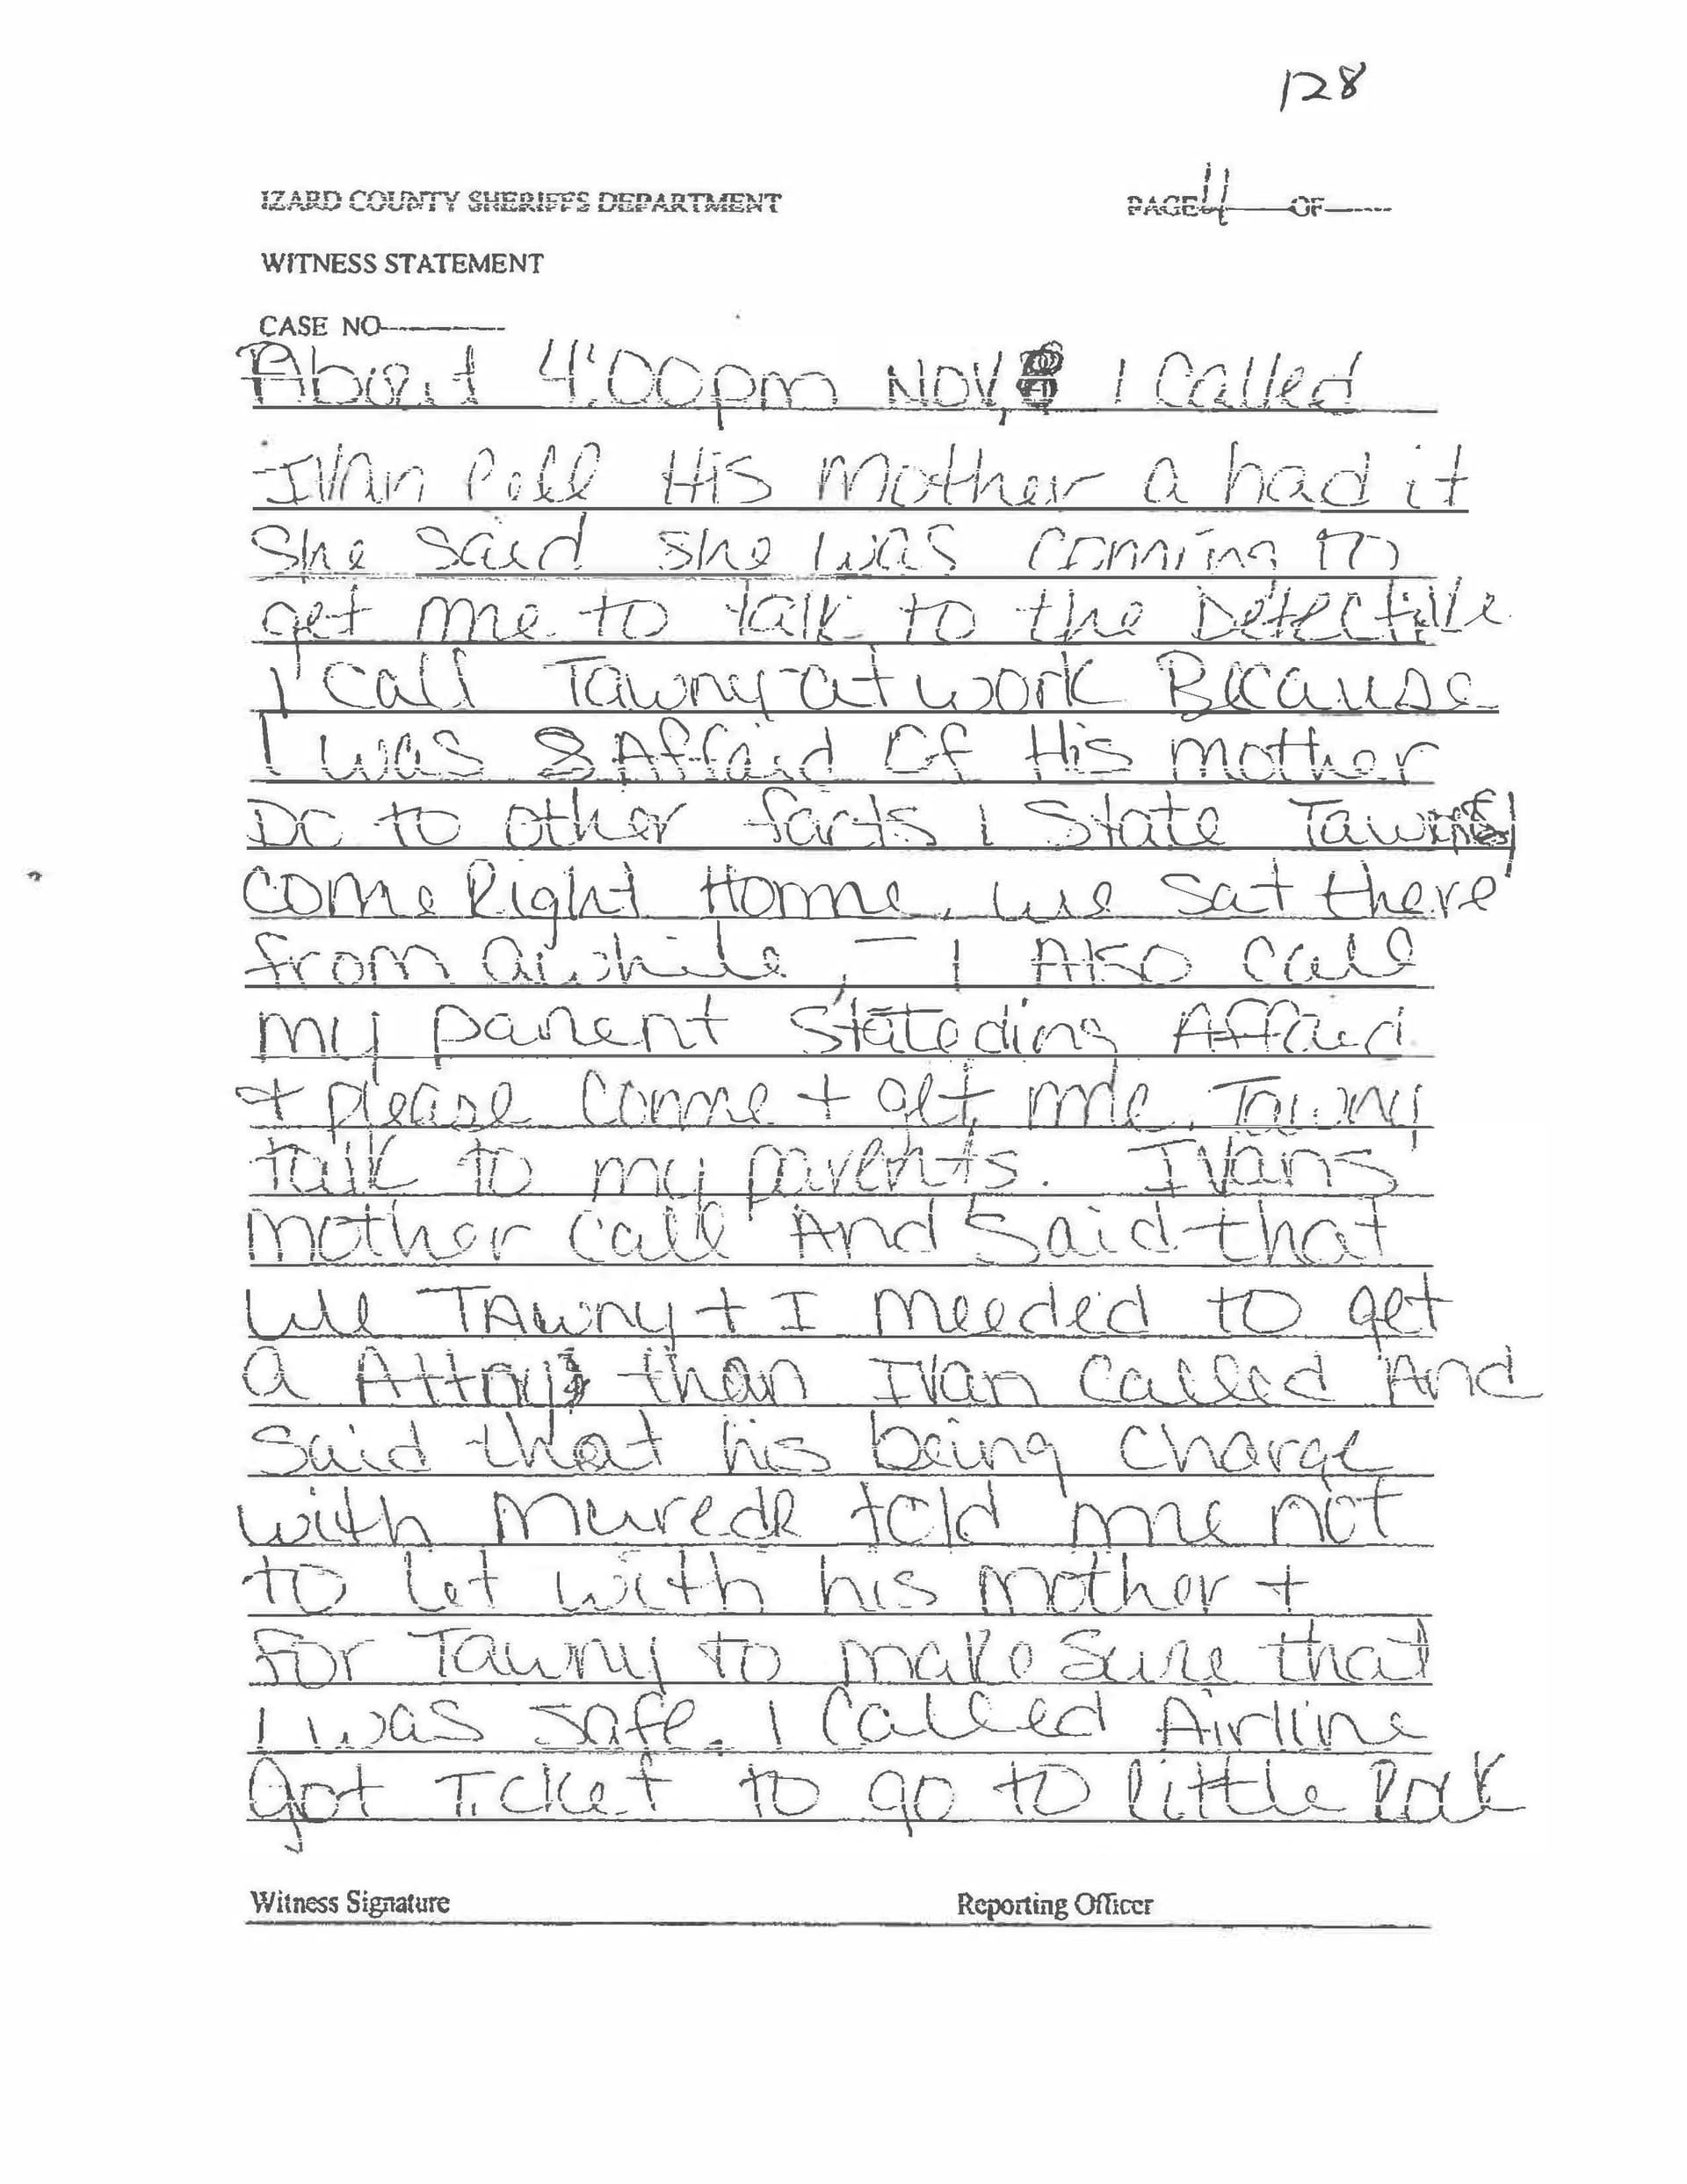 128
IZARD COUNTY SHERIFFS DEPARTMENT PAGE 4 OF
WITNESS STATEMENT
CASE NO
About 4:00pm NOV, I Called
IVan Cell His Mother a had it
She said she was comming to
get me to talk to the Detective
I call Tawny at work Because
I was Affraid Of His mother
Do to other facts I State Tawny
come Right Home, we sat there
from awhile, - I Also call
my parent Stateding Affraid
+ please Comme + get me. Tawny
talk to my parents. IVans
mother call And Said that
We TAwny + I needed to get
a Attny than IVan Called And
said that his being charge
with Muredr told me not
to let with his mother +
for Tawny to make sure that
I was safe. I Called Airline
got Ticket to go to little Rock
Witness Signature Reporting Officer